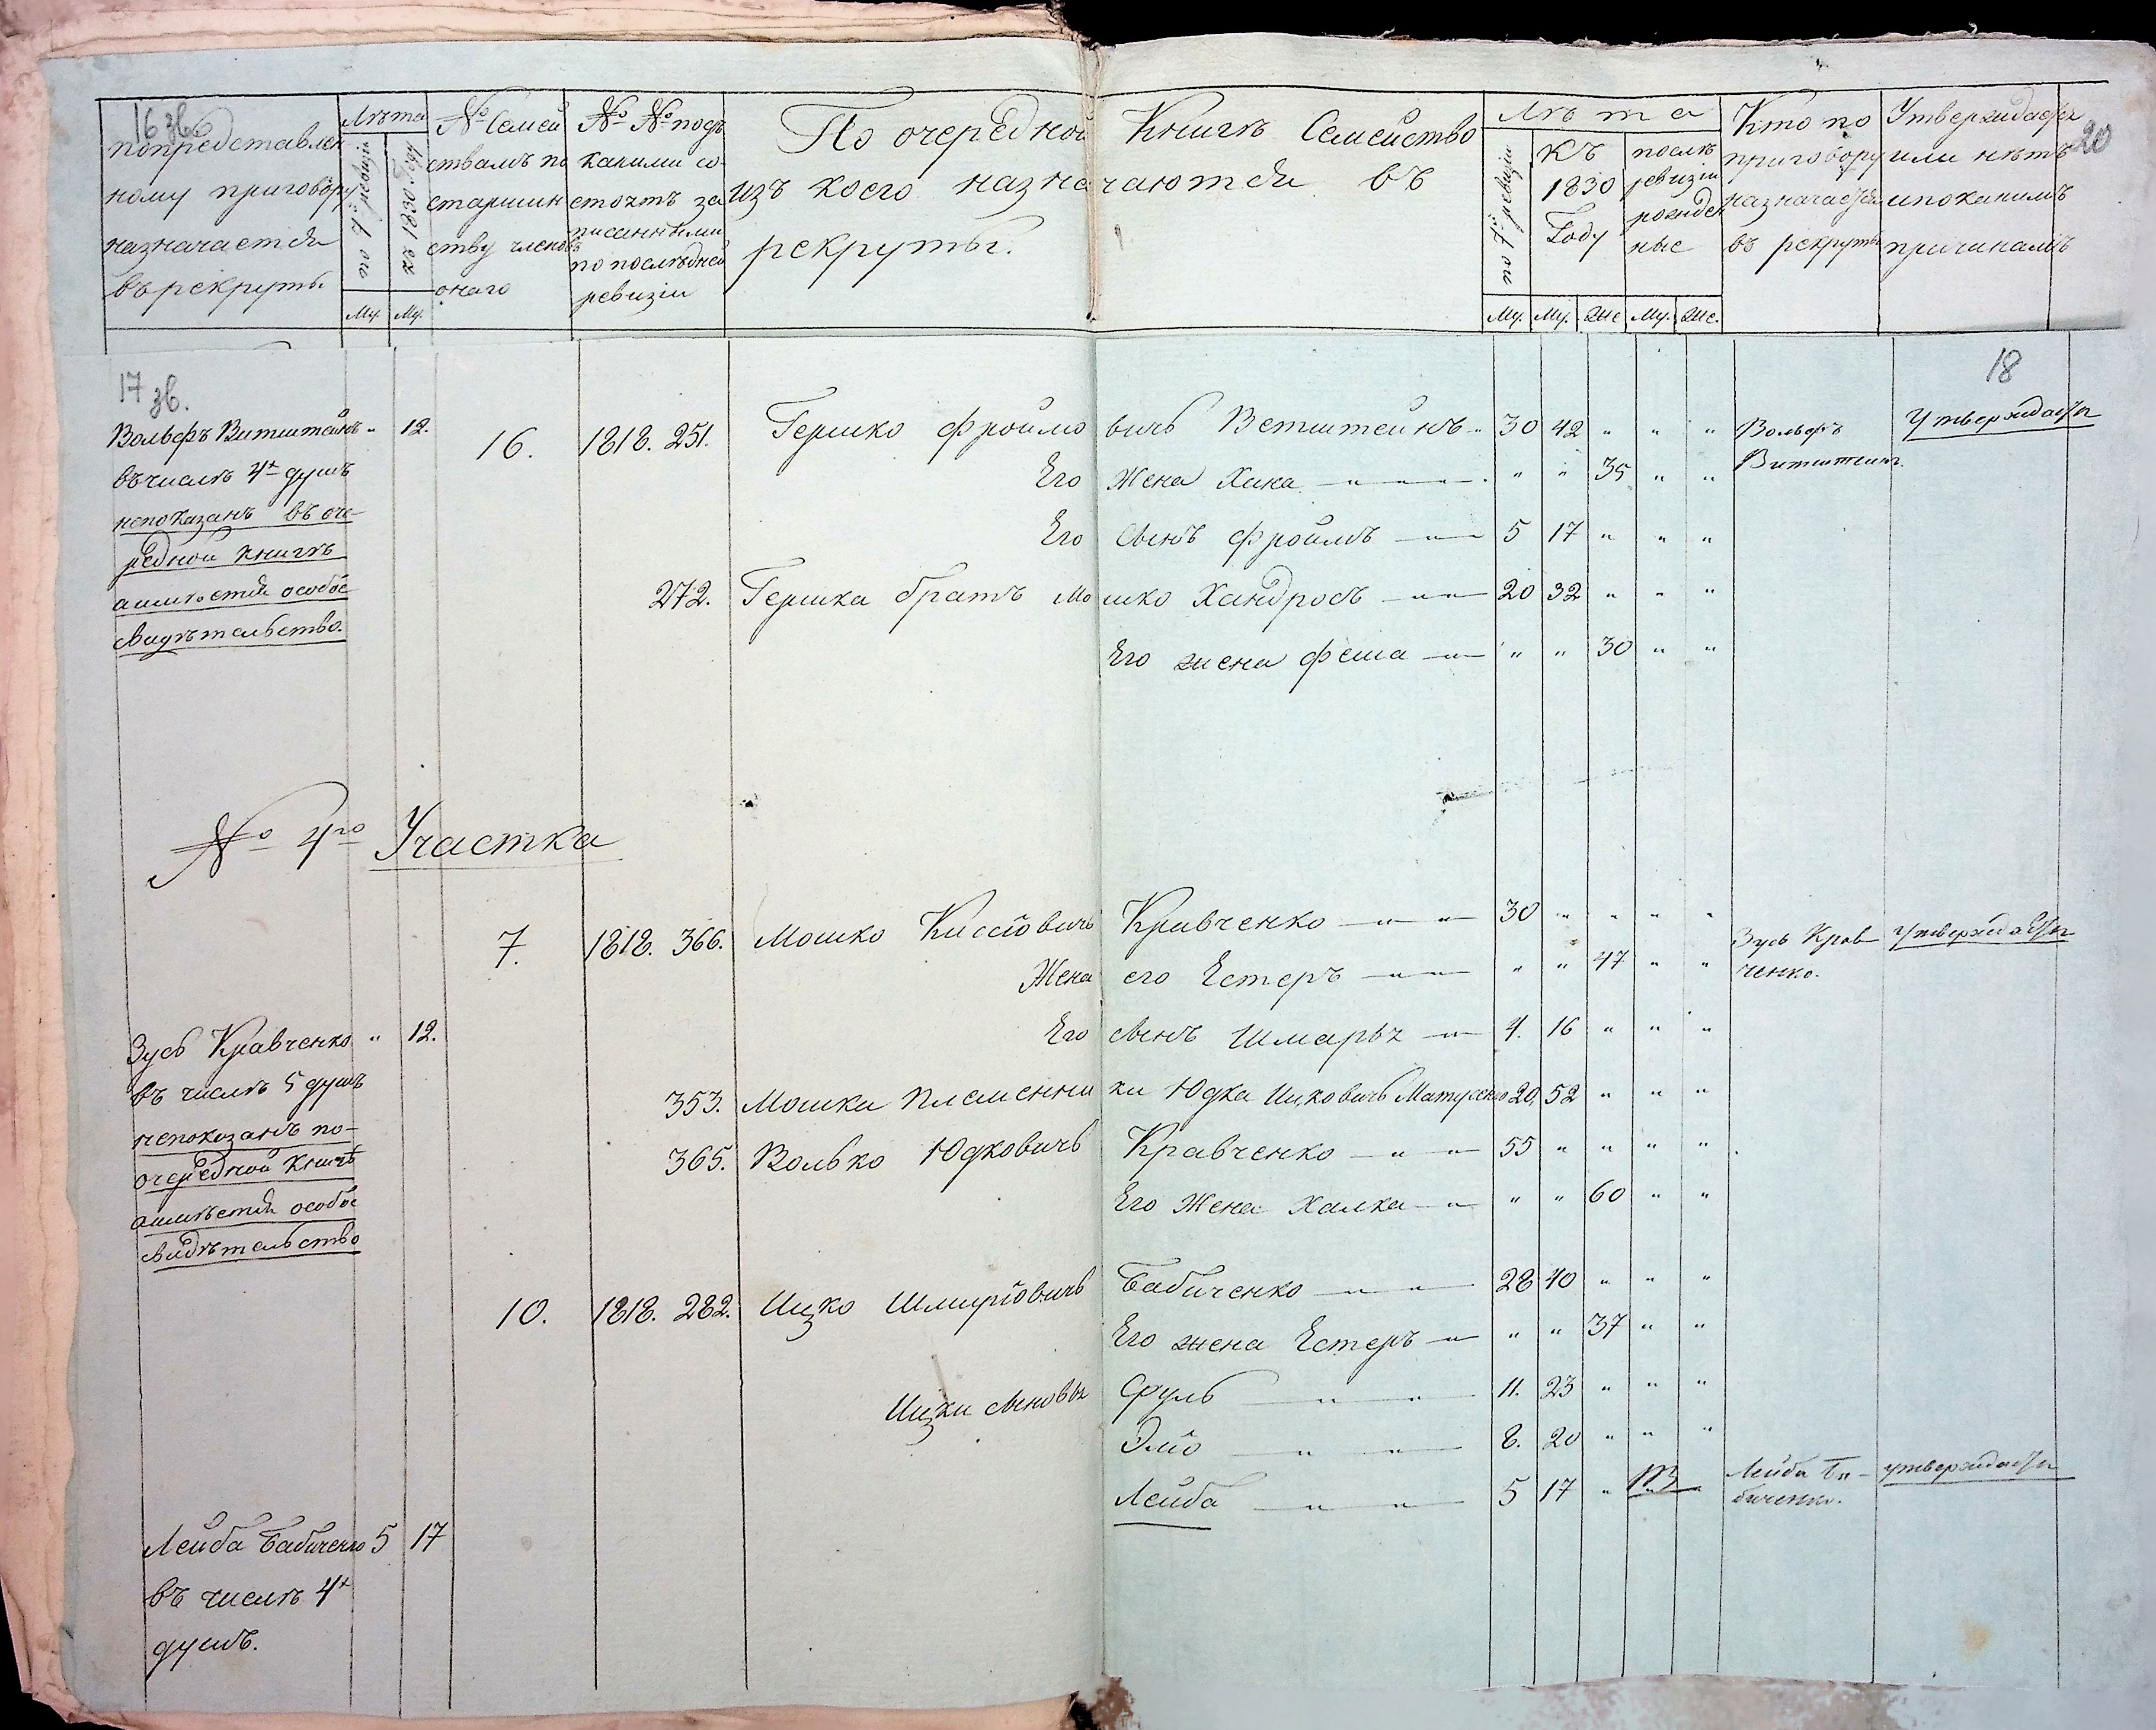 16 зв.
попредставлен
ному приговору
назначается
въ рекруты
Лѣта
по 7й ревизіи
къ 1830 году
Му. Му.
№ Семей
ствамъ по
старшин
ству членовъ
онаго
№ № подъ
какими со
стоитъ за
писанными
по последней
ревизіи
По очередной Книгѣ Семейство
изъ коего назначаются въ
рекруты.
Лѣта
по 7й ревизіи
Къ
1830
Году
послѣ
ревизіи
рожден
ные
Му. Му. Же Му. Же.
Кто по
приговору
назначается
въ рекруты
Утверждается
или нѣтъ
и по какимъ
причинамъ
20
17 зв.
18
Вольфъ Витштейнъ " 12.
въ числѣ 4х душъ
непоказанъ въ оче-
редной книгѣ
а имѣется особое
свидѣтельство.
16. 1818. 251. Гершко Фроймовичъ Ветштейнъ 30 42 " " "
Его Жена Хика " " 35 " "
Его сынъ Фроимъ 5 17 " " "
272. Гершка братъ Мошко Хандросъ 20 32 " " "
Его жена Феша " " 30 " "
Вольфъ
Витштейнъ
Утверждается
№ 4го Участка
7. 1818. 366. Мошко Киссіовичъ Кравченко 30 " " " "
Жена его Естеръ " " 47 " "
Его сынъ Шмарья 4. 16 " " "
353. Мошки племенники Юдка Ицковичъ 20 52 " " "
365. Волько Юдковичъ Кравченко 55 " " " "
Его Жена Халка " " 60 " "
Зусь Крав-
ченко.
Утверждается
Зусь Кравченко " 12.
въ числѣ 5 душъ
непоказанъ по-
очередной книгѣ
а имѣется особое
свидѣтельство
10. 1818. 282. Ицко Шмуріовичъ Бабиченко 28 40 " " "
Его жена Естеръ " " 37 " "
Ицки сыновья Сруль 11. 23 " " "
Элio 8. 20 " " "
Лейба 5 17 "
Лейба Ба-
биченко.
утверждается
Лейба Бабиченко 5 17
въ числѣ 4х
душъ.